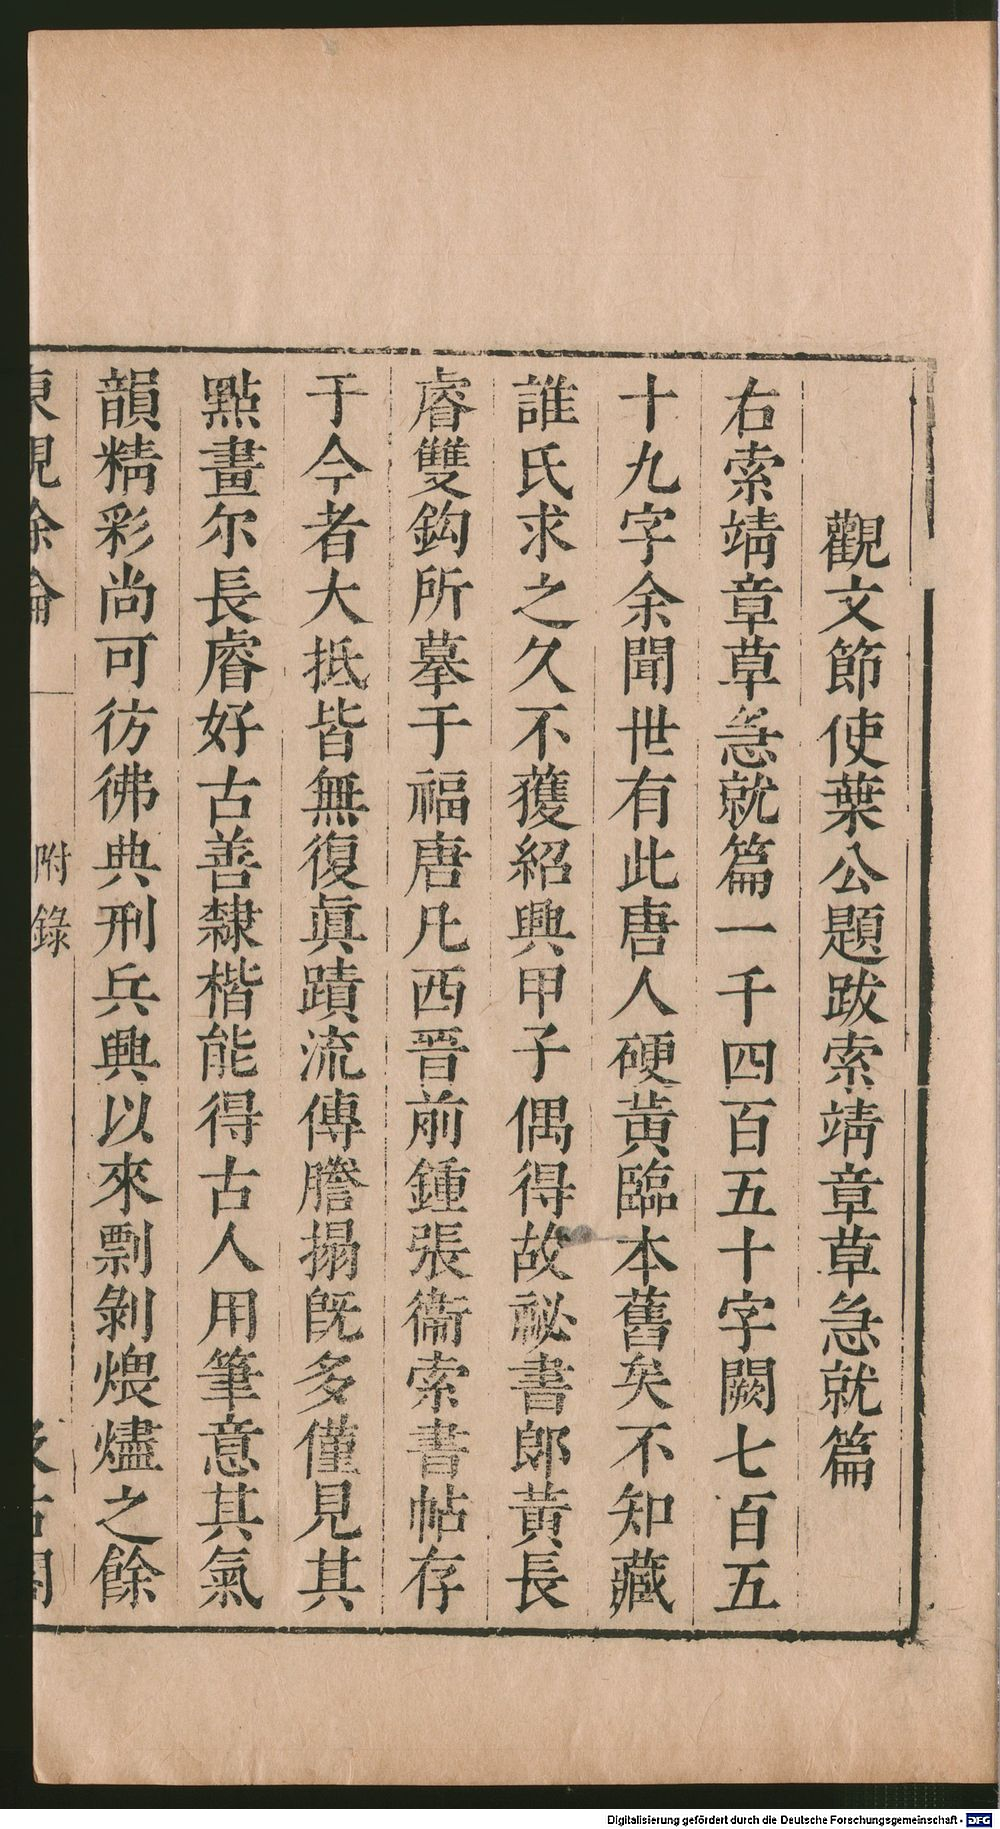 觀文節使葉公題跋索靖章草急就篇
右索靖章草急就篇一千四百五十字闕七百五
十九字余聞世有此唐人硬黃臨本舊矣不知藏
誰氏求之久不獲紹興甲子偶得故祕書郎黃長
睿雙鈎所摹于福唐凡西晉前鍾張衞索書帖存
于今者大抵皆無復眞蹟流傳謄搨旣多僅見其
點畫尔長睿好古善隸楷能得古人用筆意其氣
韻精彩尚可彷彿典刑兵興以來剽剝煨燼之餘
東觀余論
附錄
汲古閣
Digitalisierung gefördert durch die Deutsche Forschungsgemeinschaft - DFG